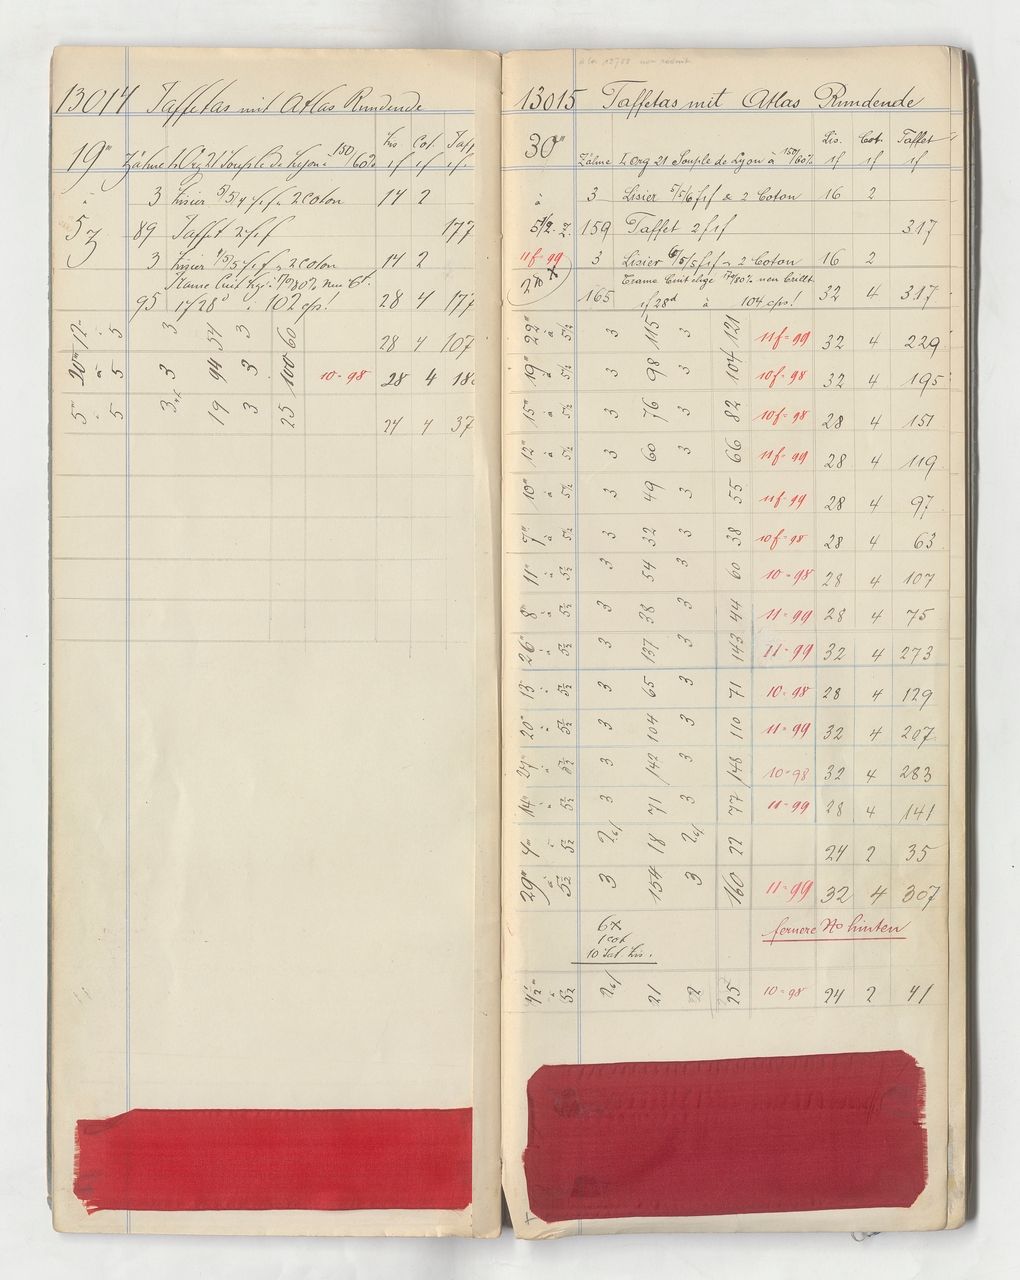 13014 Taffetas mit Atlas Rundende
Lis. Cot. Taff
19''' Zähne Org 21 Souple de Lyon à 150/60% 1f 1f 1f
à 3 Lisier 5/5/4 f, f. 2 coton 14 2
5 89 Taffet 2 f, f 177
3 Lisier 4/5/5 f. f. 2 coton 14 2
95 1f 28d à 102 cps! 28 4 177
12''' à 5 3 54 3 60 28 4 107
20''' à 5 3 94 3 100 10-98 28 4 18
5''' à 5 3 19 3 25 24 4 37
13015 Taffetas mit Atlas Rundende
Lis. Cot. Taffet
30''' Zähne Org 21 Souple de Lyon à 150/60% 1f 1f 1f
à 3 Lisier 5/5/6 f, f & 2 Coton 16 2
5 1/2 159 Taffet 2 f, f 317
11f-99 3 Lisier 6/5/5 f, f 2 Coton 16 2
165 1f 28d à 104 cps! 32 4 317
22''' à 5½ 3 115 3 121 11f-99 32 4 229
19''' à 5½ 3 98 3 104 10f-98 32 4 195
15''' à 5½ 3 76 3 82 10f-98 28 4 151
12''' à 5½ 3 60 3 66 11f-99 28 4 119
10''' à 5½ 3 49 3 55 11f-99 28 4 97
7''' à 5½ 3 32 3 38 10f-98 28 4 63
11''' à 5½ 3 54 3 60 10-98 28 4 107
8''' à 5½ 3 38 3 44 11-99 28 4 75
26''' à 5½ 3 137 3 143 11-99 32 4 273
13''' à 5½ 3 65 3 71 10-98 28 4 129
20''' à 5½ 3 104 3 110 11-99 32 4 207
27''' à 5½ 3 142 3 148 10-98 32 4 283
14''' à 5½ 3 71 3 77 11-99 28 4 141
4''' à 5½ 18 22 24 2 35
29''' à 5½ 3 154 3 160 11-99 32 4 307
6x fernere No hinten
1 cot
10 Lis.
4½''' à 5½ 21 2 25 10-98 24 2 41